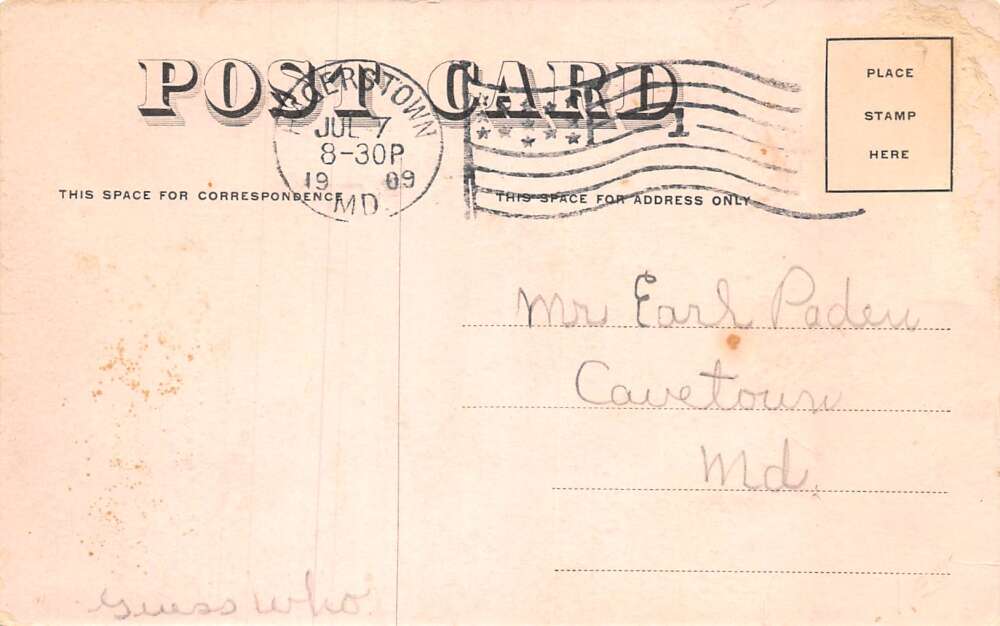 POST CARD
HAGERSTOWN
JUL 7
8-30P
19 09
MD.
1
PLACE
STAMP
HERE
THIS SPACE FOR CORRESPONDENCE
THIS SPACE FOR ADDRESS ONLY
Mr Earl Paden
Cavetown
Md.
Guess who.